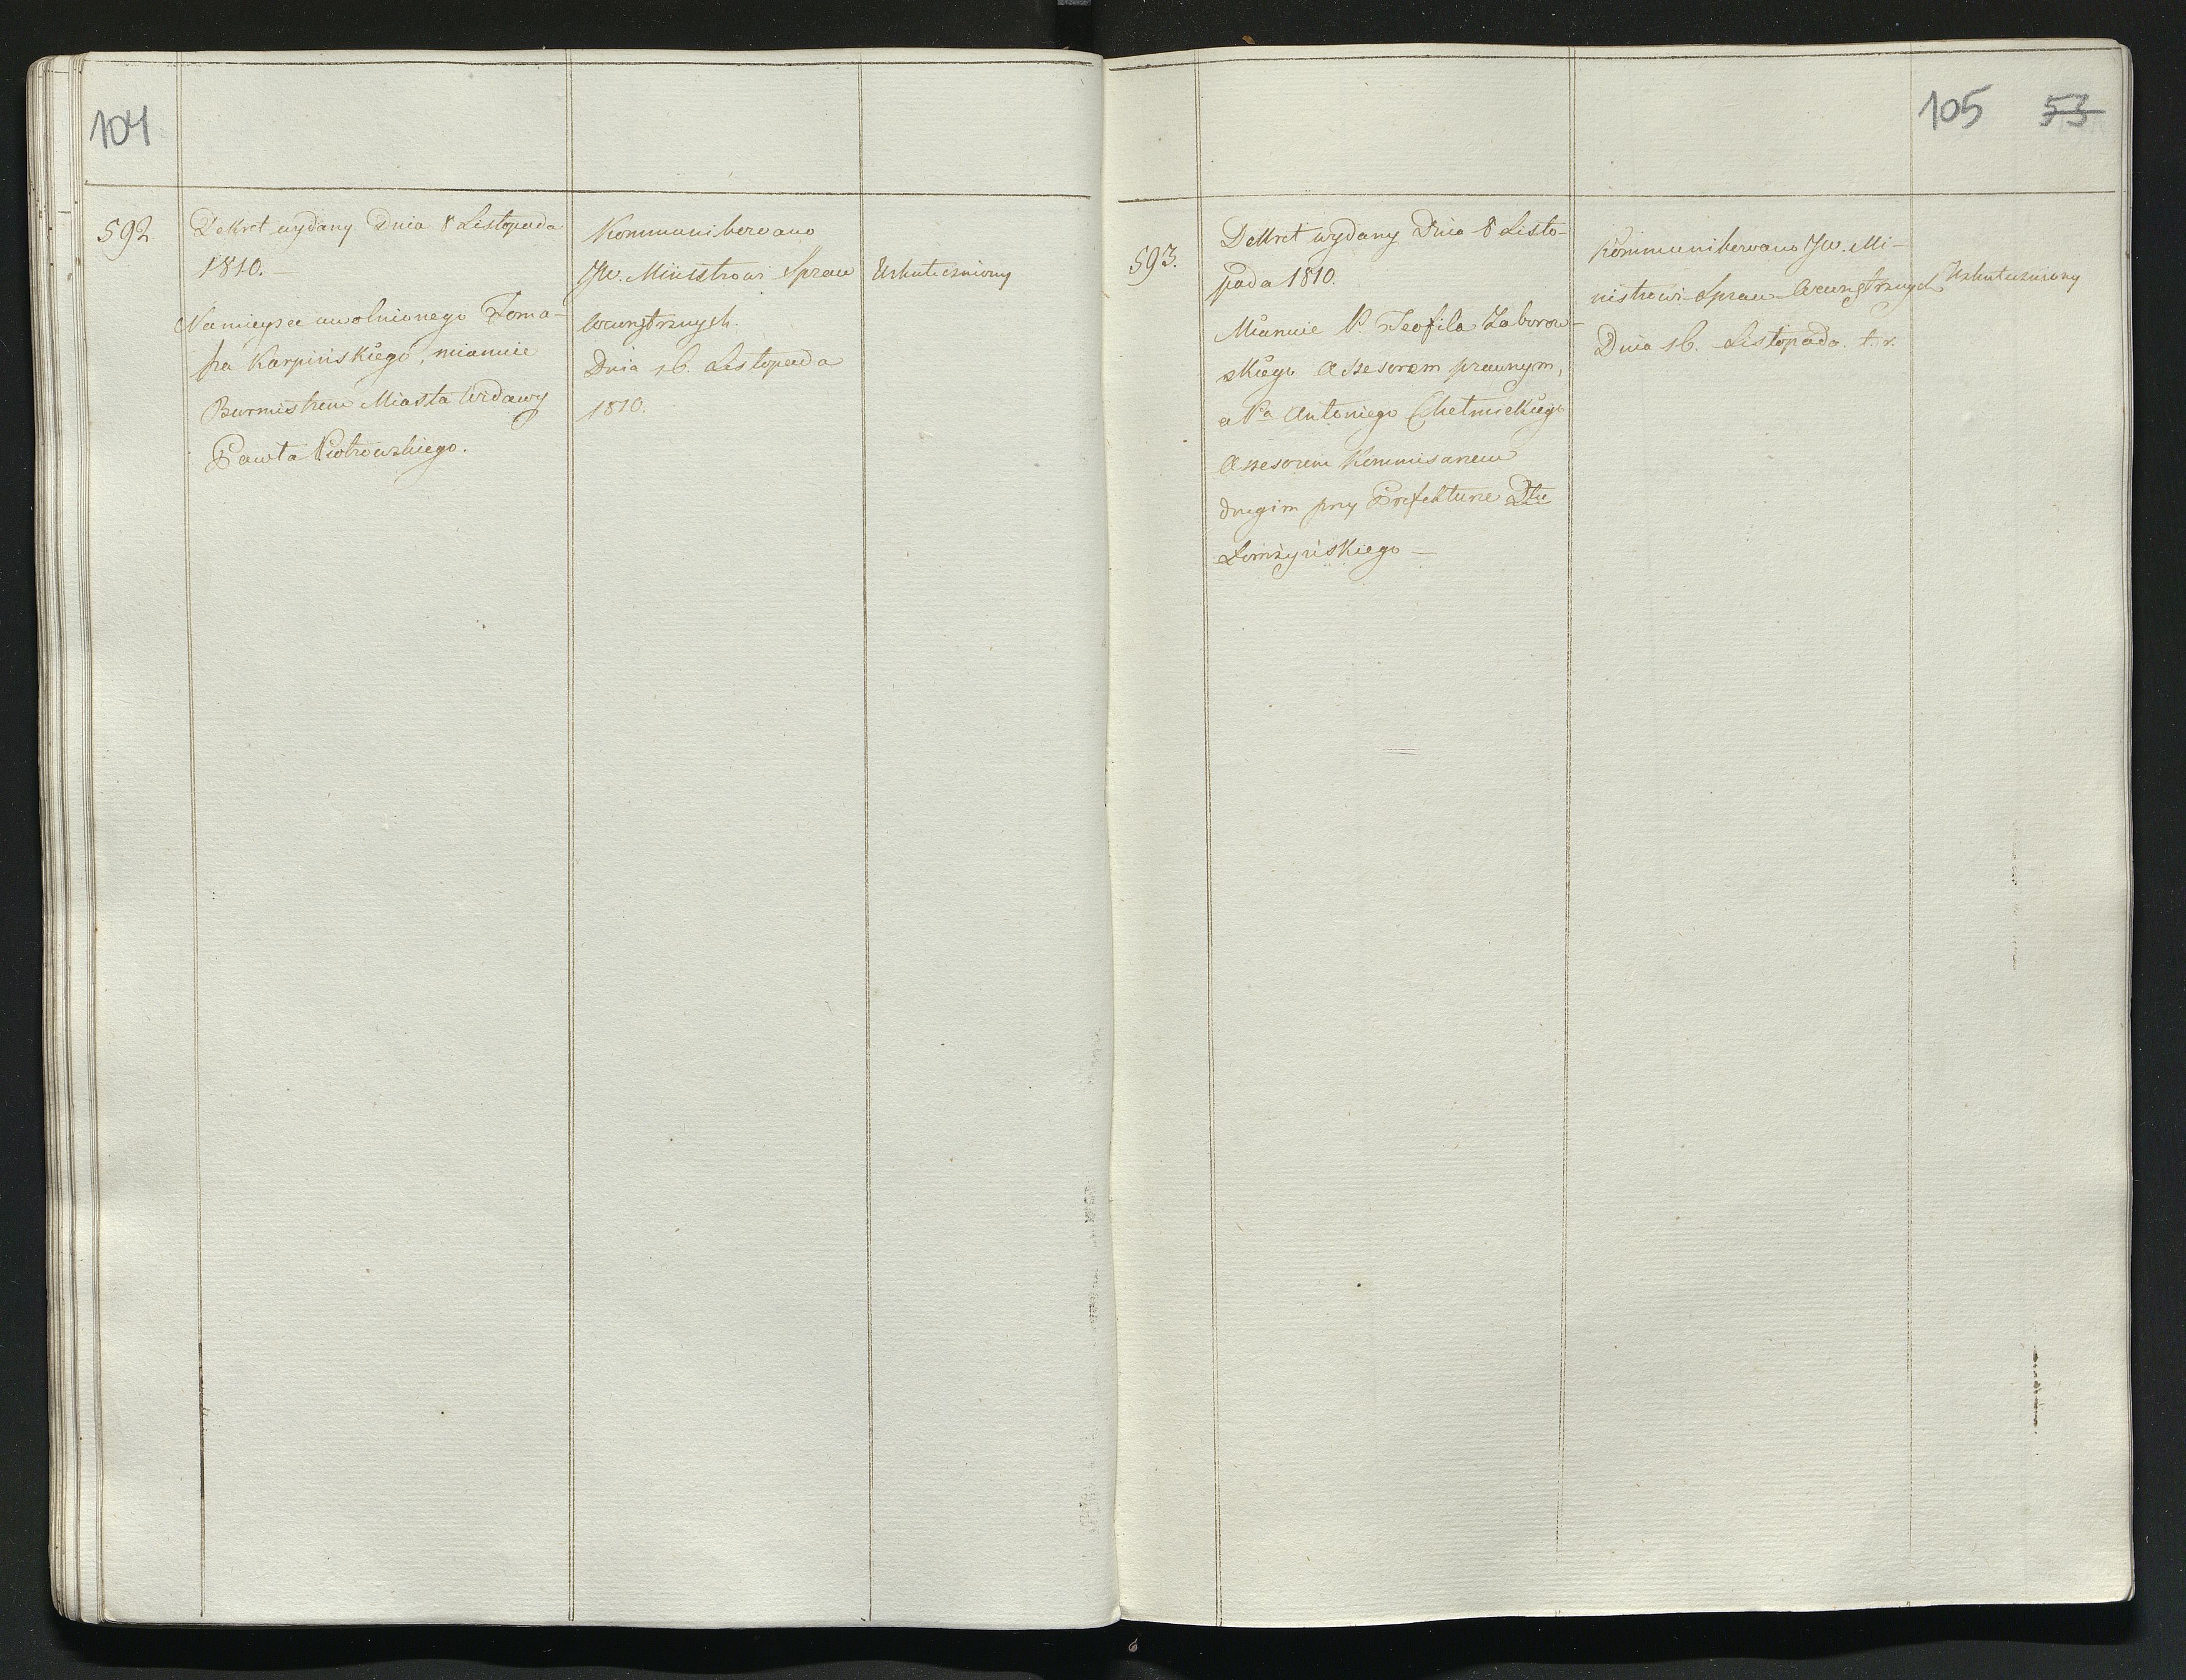 104
592
Dekret wydany Dnia 8 Listopada
1810. —
Na mieysce uwolnionego Toma-
sza Karpińskiego, mianuie
Burmistrzem Miasta Widawy
Pawła Piotrowskiego.
Kommunikowano
JW. Ministrowi Spraw
Wewnętrznych.
Dnia 16. Listopada
1810.
Uskuteczniony
105 53
593.
Dekret wydany Dnia 8 Listo-
pada 1810.
Mianuie P. Teofila Zaborow-
skiego Assesorem prawnym,
a Pa Antoniego Chełmickiego
Assesorem Kommisarzem
drugim przy Prefekturze Dtu
Łomżyńskiego —
Kommunikowano JW. Mi-
nistrowi Spraw Wewnętrznych
Dnia 16. Listopada t. r.
Uskuteczniony